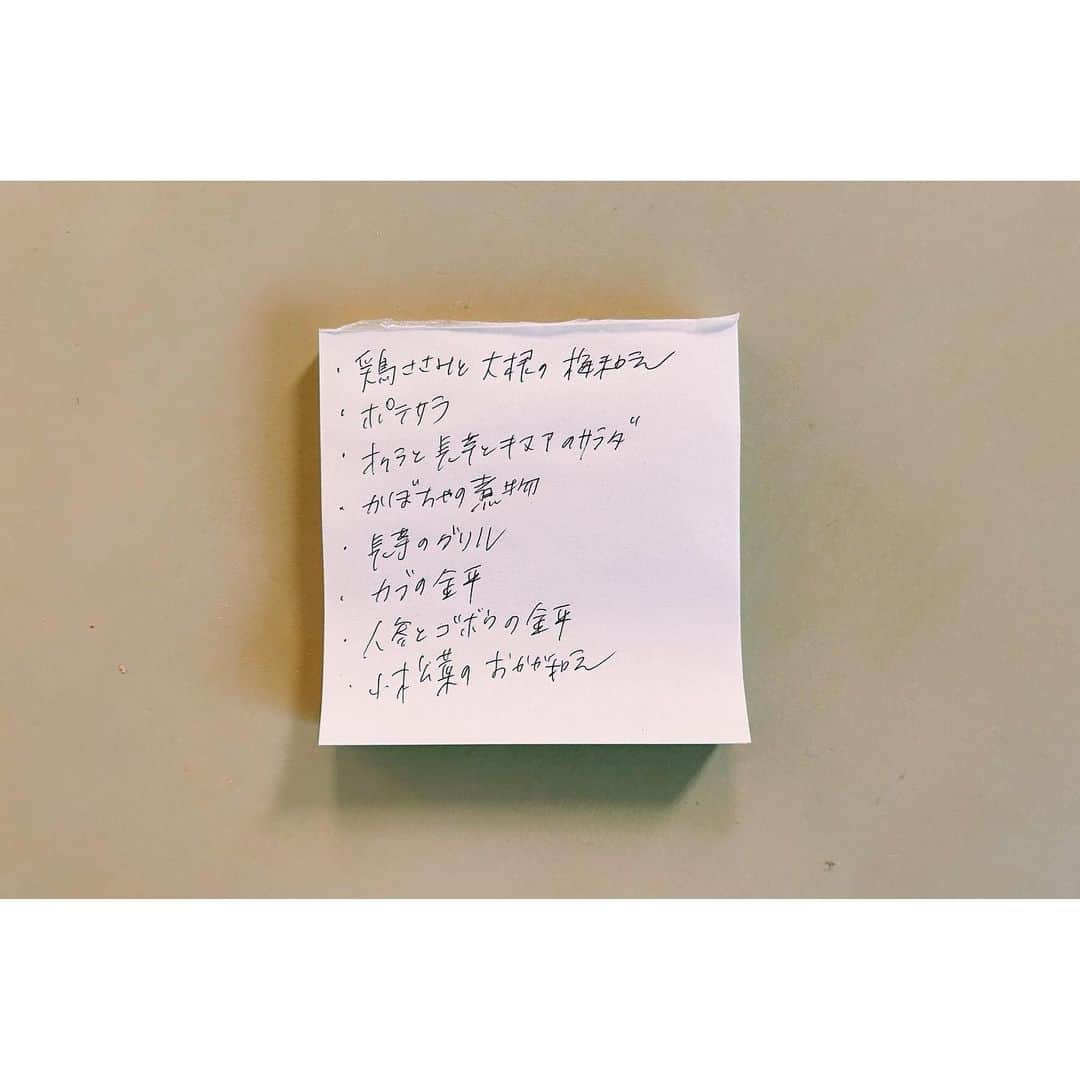 ・鶏ささみと大根の梅和え
・ポテサラ
・オクラと長芋とキヌアのサラダ
・かぼちゃの煮物
・長芋のグリル
・カブの金平
・人参とゴボウの金平
・小松菜のおかか和え